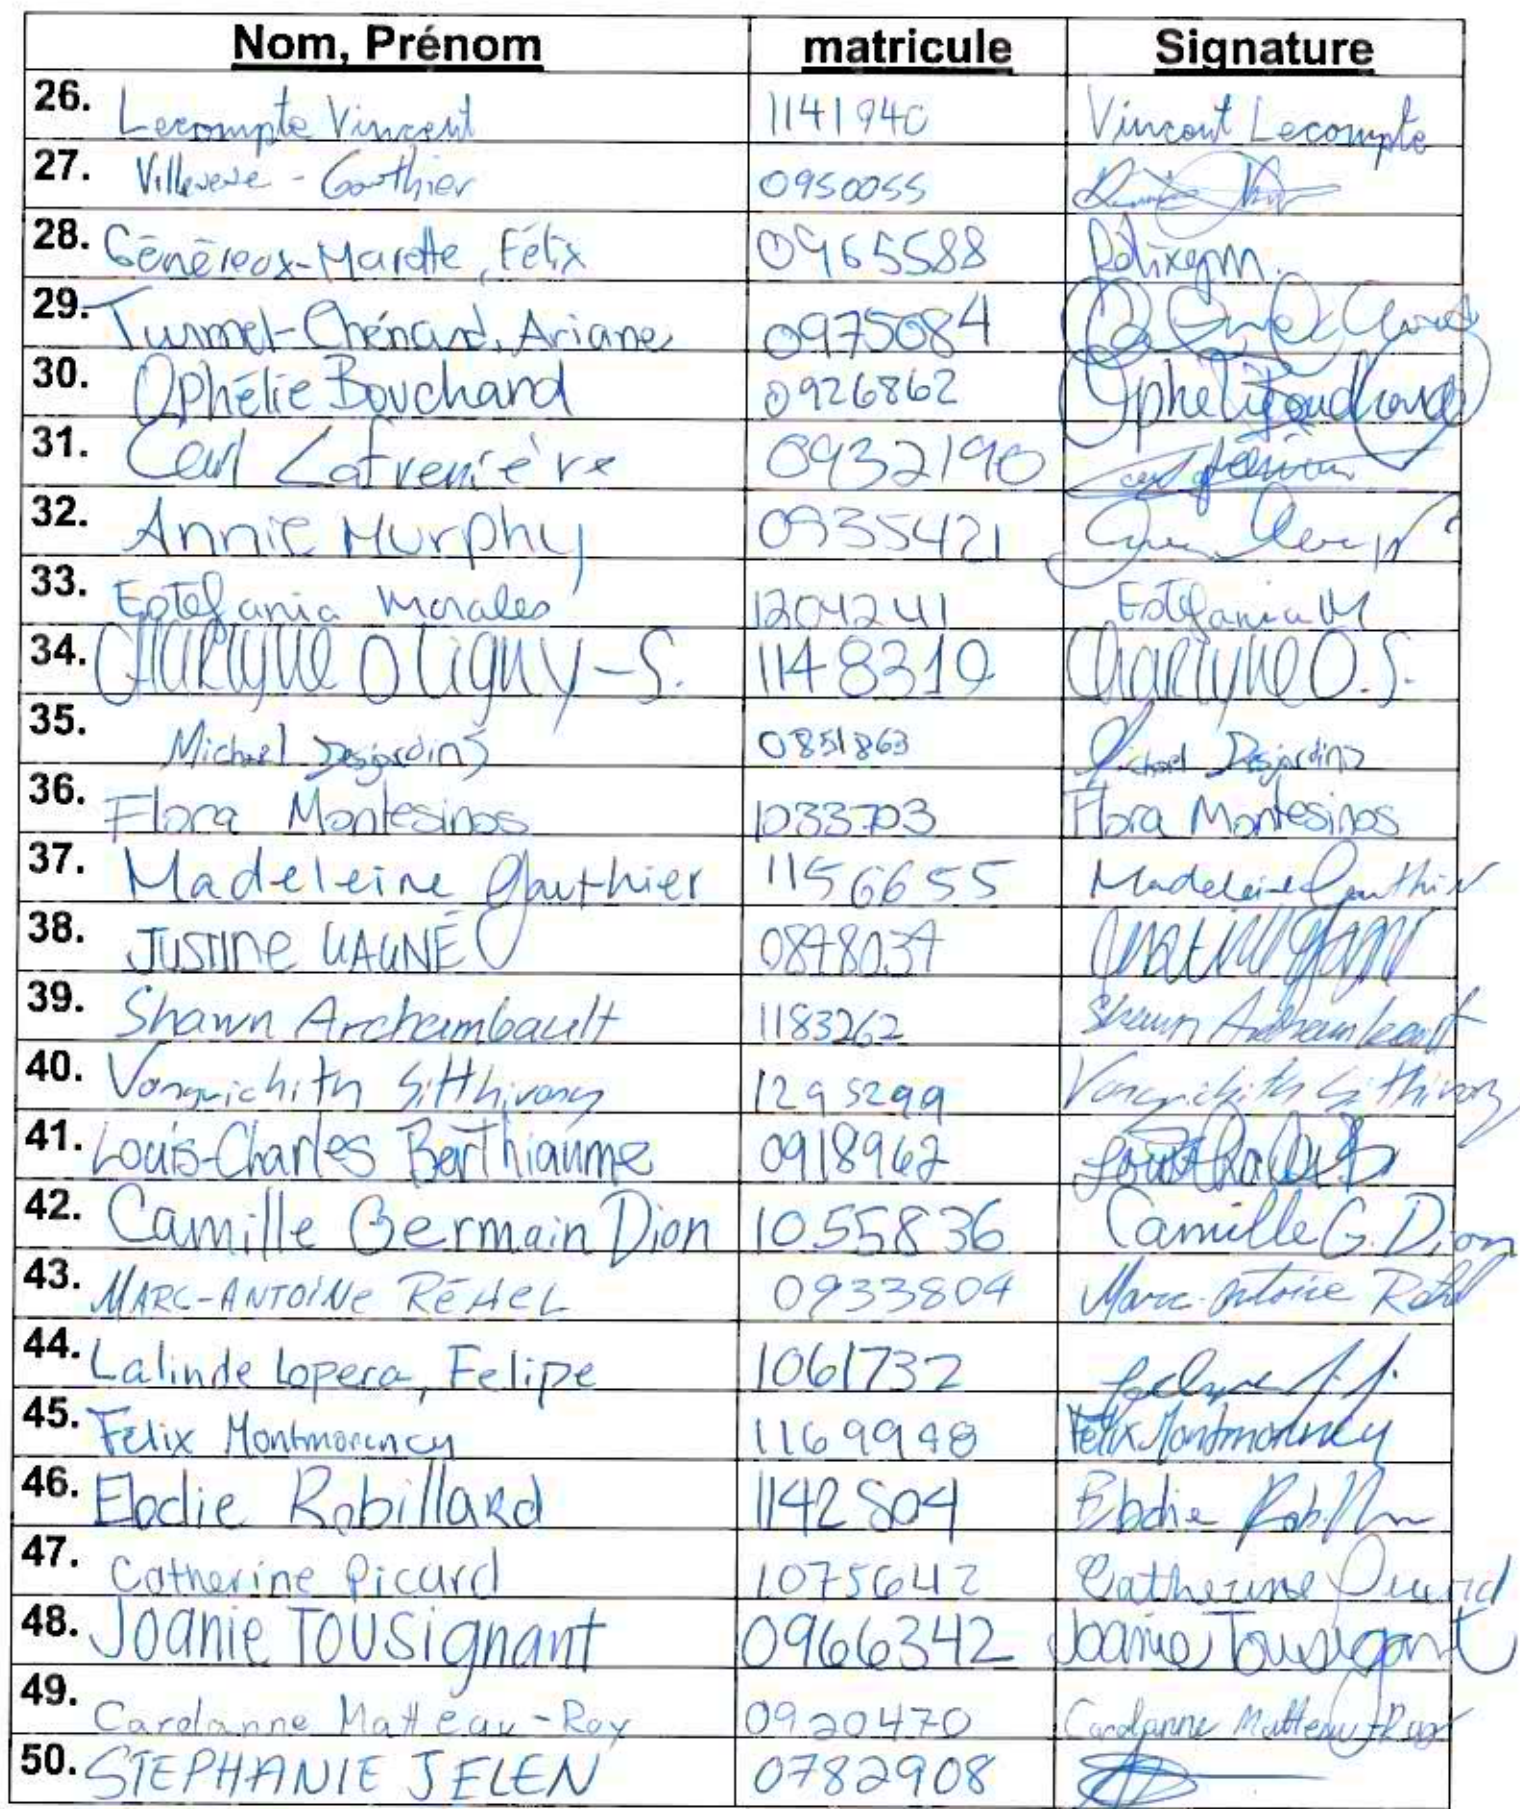 Nom, Prénom matricule Signature
26. Lecompte Vincent 1141940 Vincent Lecompte
27. Villeneuve - Gauthier 0950055
28. Généreux-Marotte, Félix 0965588 Félixgm.
29. Turmel-Chénard, Ariane 0975084
30. Ophélie Bouchard 0926862 Ophélie Bouchard
31. Carl Lafrenière 0932190
32. Annie Murphy 0935421
33. Estefania Morales 1204241 Estefania M
34. Charlyne Oligny-S. 1148310 Charlyne O.S.
35. Michael Desjardins 0851863 Michael Desjardins
36. Flora Montesinos 1033703 Flora Montesinos
37. Madeleine Gauthier 1156655 Madeleine Gauthier
38. JUSTINE GAGNÉ 0878037 Justine Gagné
39. Shawn Archambault 1183262 Shawn Archambault
40. Vongvichith Sitthivong 1295299 Vongvichith Sitthivong
41. Louis-Charles Berthiaume 0918962 Louis-Charles B
42. Camille Germain Dion 1055836 Camille G. Dion
43. MARC-ANTOINE RÉHEL 0933804 Marc-Antoine Réhel
44. Lalinde Lopera, Felipe 1061732
45. Félix Montmorency 1169948 Félix Montmorency
46. Elodie Robillard 1142504 Elodie Robillard
47. Catherine Picard 1075642 Catherine Picard
48. Joanie Tousignant 0966342 Joanie Tousignant
49. Carolanne Matteau-Roy 0920470 Carolanne Matteau-Roy
50. STEPHANIE JELEN 0782908